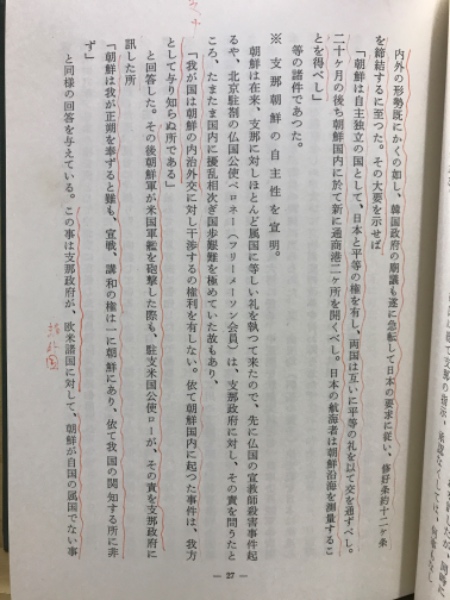 内外の形勢既にかくの如し、韓国政府の廟議も遂に急転して日本の要求に従い、修好条約十二ヶ条
を締結するに至つた。その大要を示せば
「朝鮮は自主独立の国として、日本と平等の権を有し、両国は互いに平等の礼を以て交を通ずべし。
二十ヶ月の後ち朝鮮国内に於て新に通商港二ヶ所を開くべし。日本の航海者は朝鮮沿海を測量するこ
とを得べし」
等の諸件であつた。
※ 支那朝鮮の自主性を宣明。
朝鮮は在来、支那に対しほとんど属国に等しい礼を執つて来たので、先に仏国の宣教師殺害事件起
るや、北京駐剳の仏国公使ベロネー（フリーメーソン会員）は、支那政府に対し、その責を問うたと
ころ、たまたま国内に擾乱相次ぎ国歩艱難を極めていた故もあり、
「我が国は朝鮮の内治外交に対し干渉するの権利を有しない。依て朝鮮国内に起つた事件は、我方
として与り知らぬ所である」
と回答した。その後朝鮮軍が米国軍艦を砲撃した際も、駐支米国公使ローが、その責を支那政府に
訊した所
「朝鮮は我が正朔を奉ずると雖も、宣戦、講和の権は一に朝鮮にあり、依て我国の関知する所に非
ず」
と同様の回答を与えている。この事は支那政府が、欧米諸国に対して、朝鮮が自国の属国でない事
— 27 —